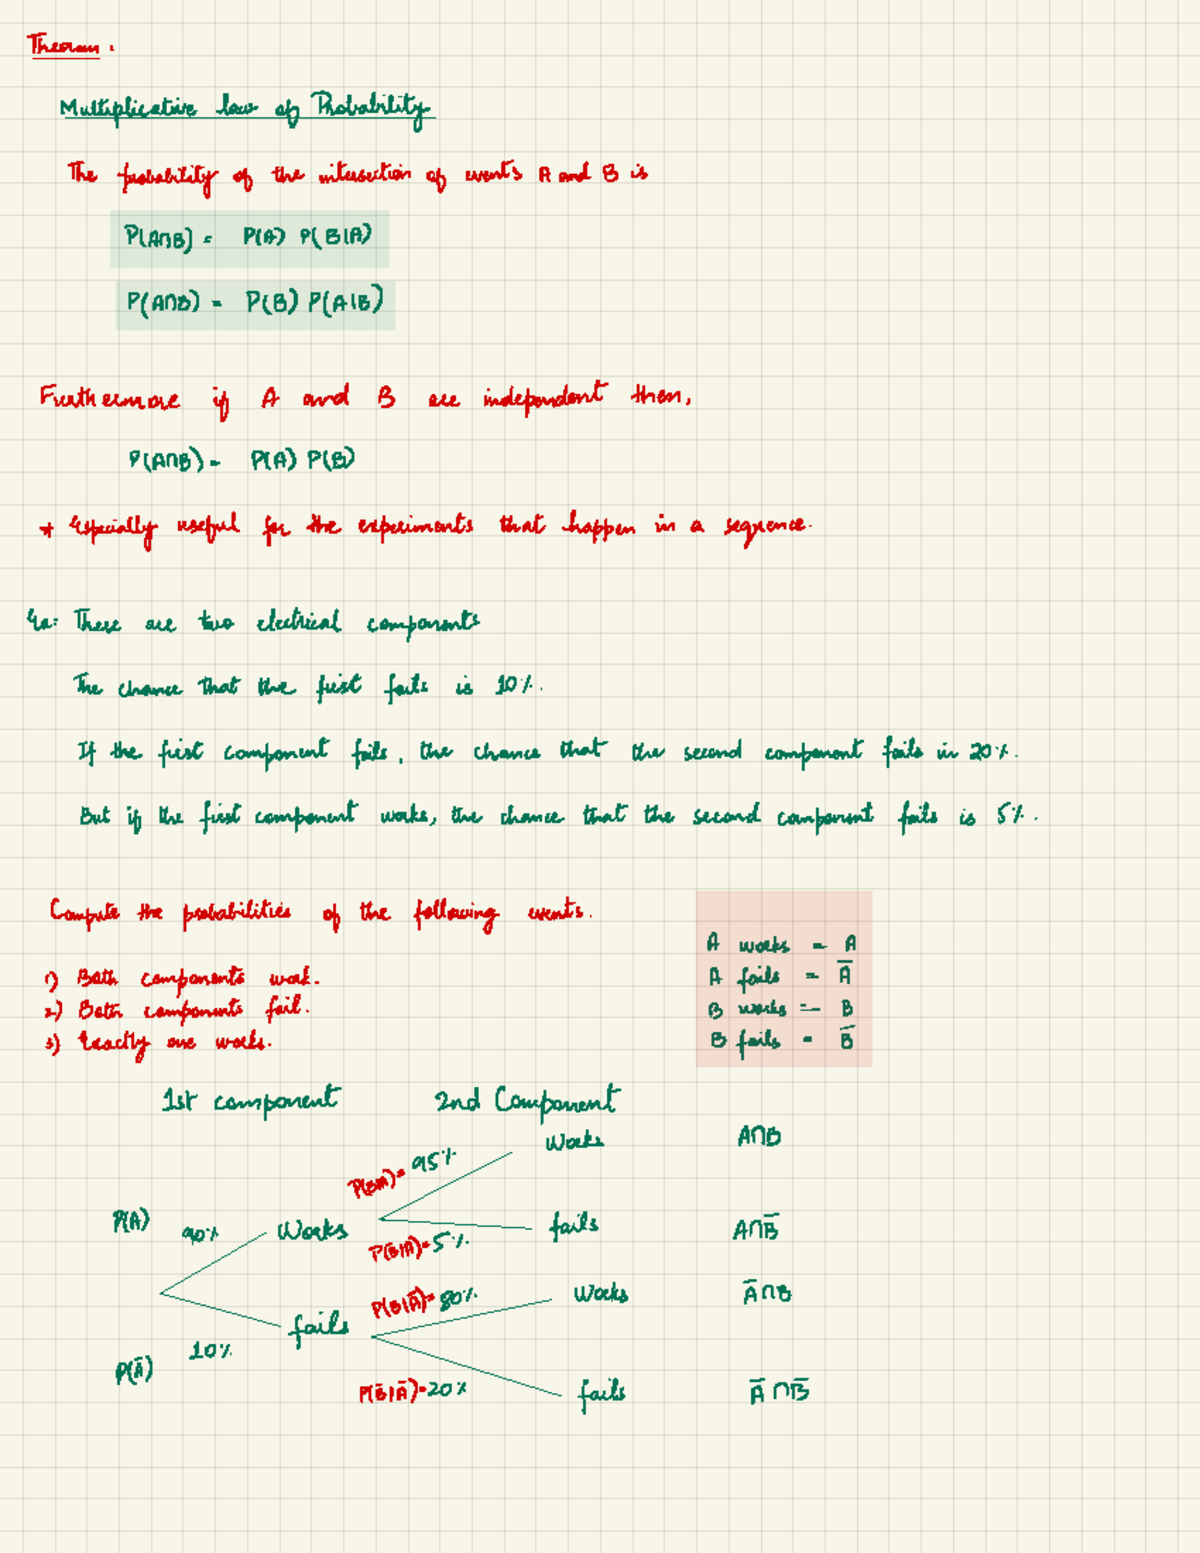 Theorem.
Multiplicative law of Probability
The probability of the intersection of events A and B is
P(A∩B) = P(A) P(B|A)
P(A∩B) = P(B) P(A|B)
Furthermore if A and B are independent then,
P(A∩B) = P(A) P(B)
* Especially useful for the experiments that happen in a sequence.
Ex: There are two electrical components
The chance that the first fails is 10%.
If the first component fails, the chance that the second component fails is 20%.
But if the first component works, the chance that the second component fails is 5%.
Compute the probabilities of the following events.
1) Both components work.
2) Both components fail.
3) Exactly one works.
A works = A
A fails = A̅
B works = B
B fails = B̅
1st component 2nd Component
Works A∩B
P(B|A) = 95%
P(A) 90% Works fails A∩B̅
P(B̅|A) = 5%
P(B|A̅) = 80% Works A̅∩B
fails
P(A̅) 10%
P(B̅|A̅) = 20% fails A̅∩B̅